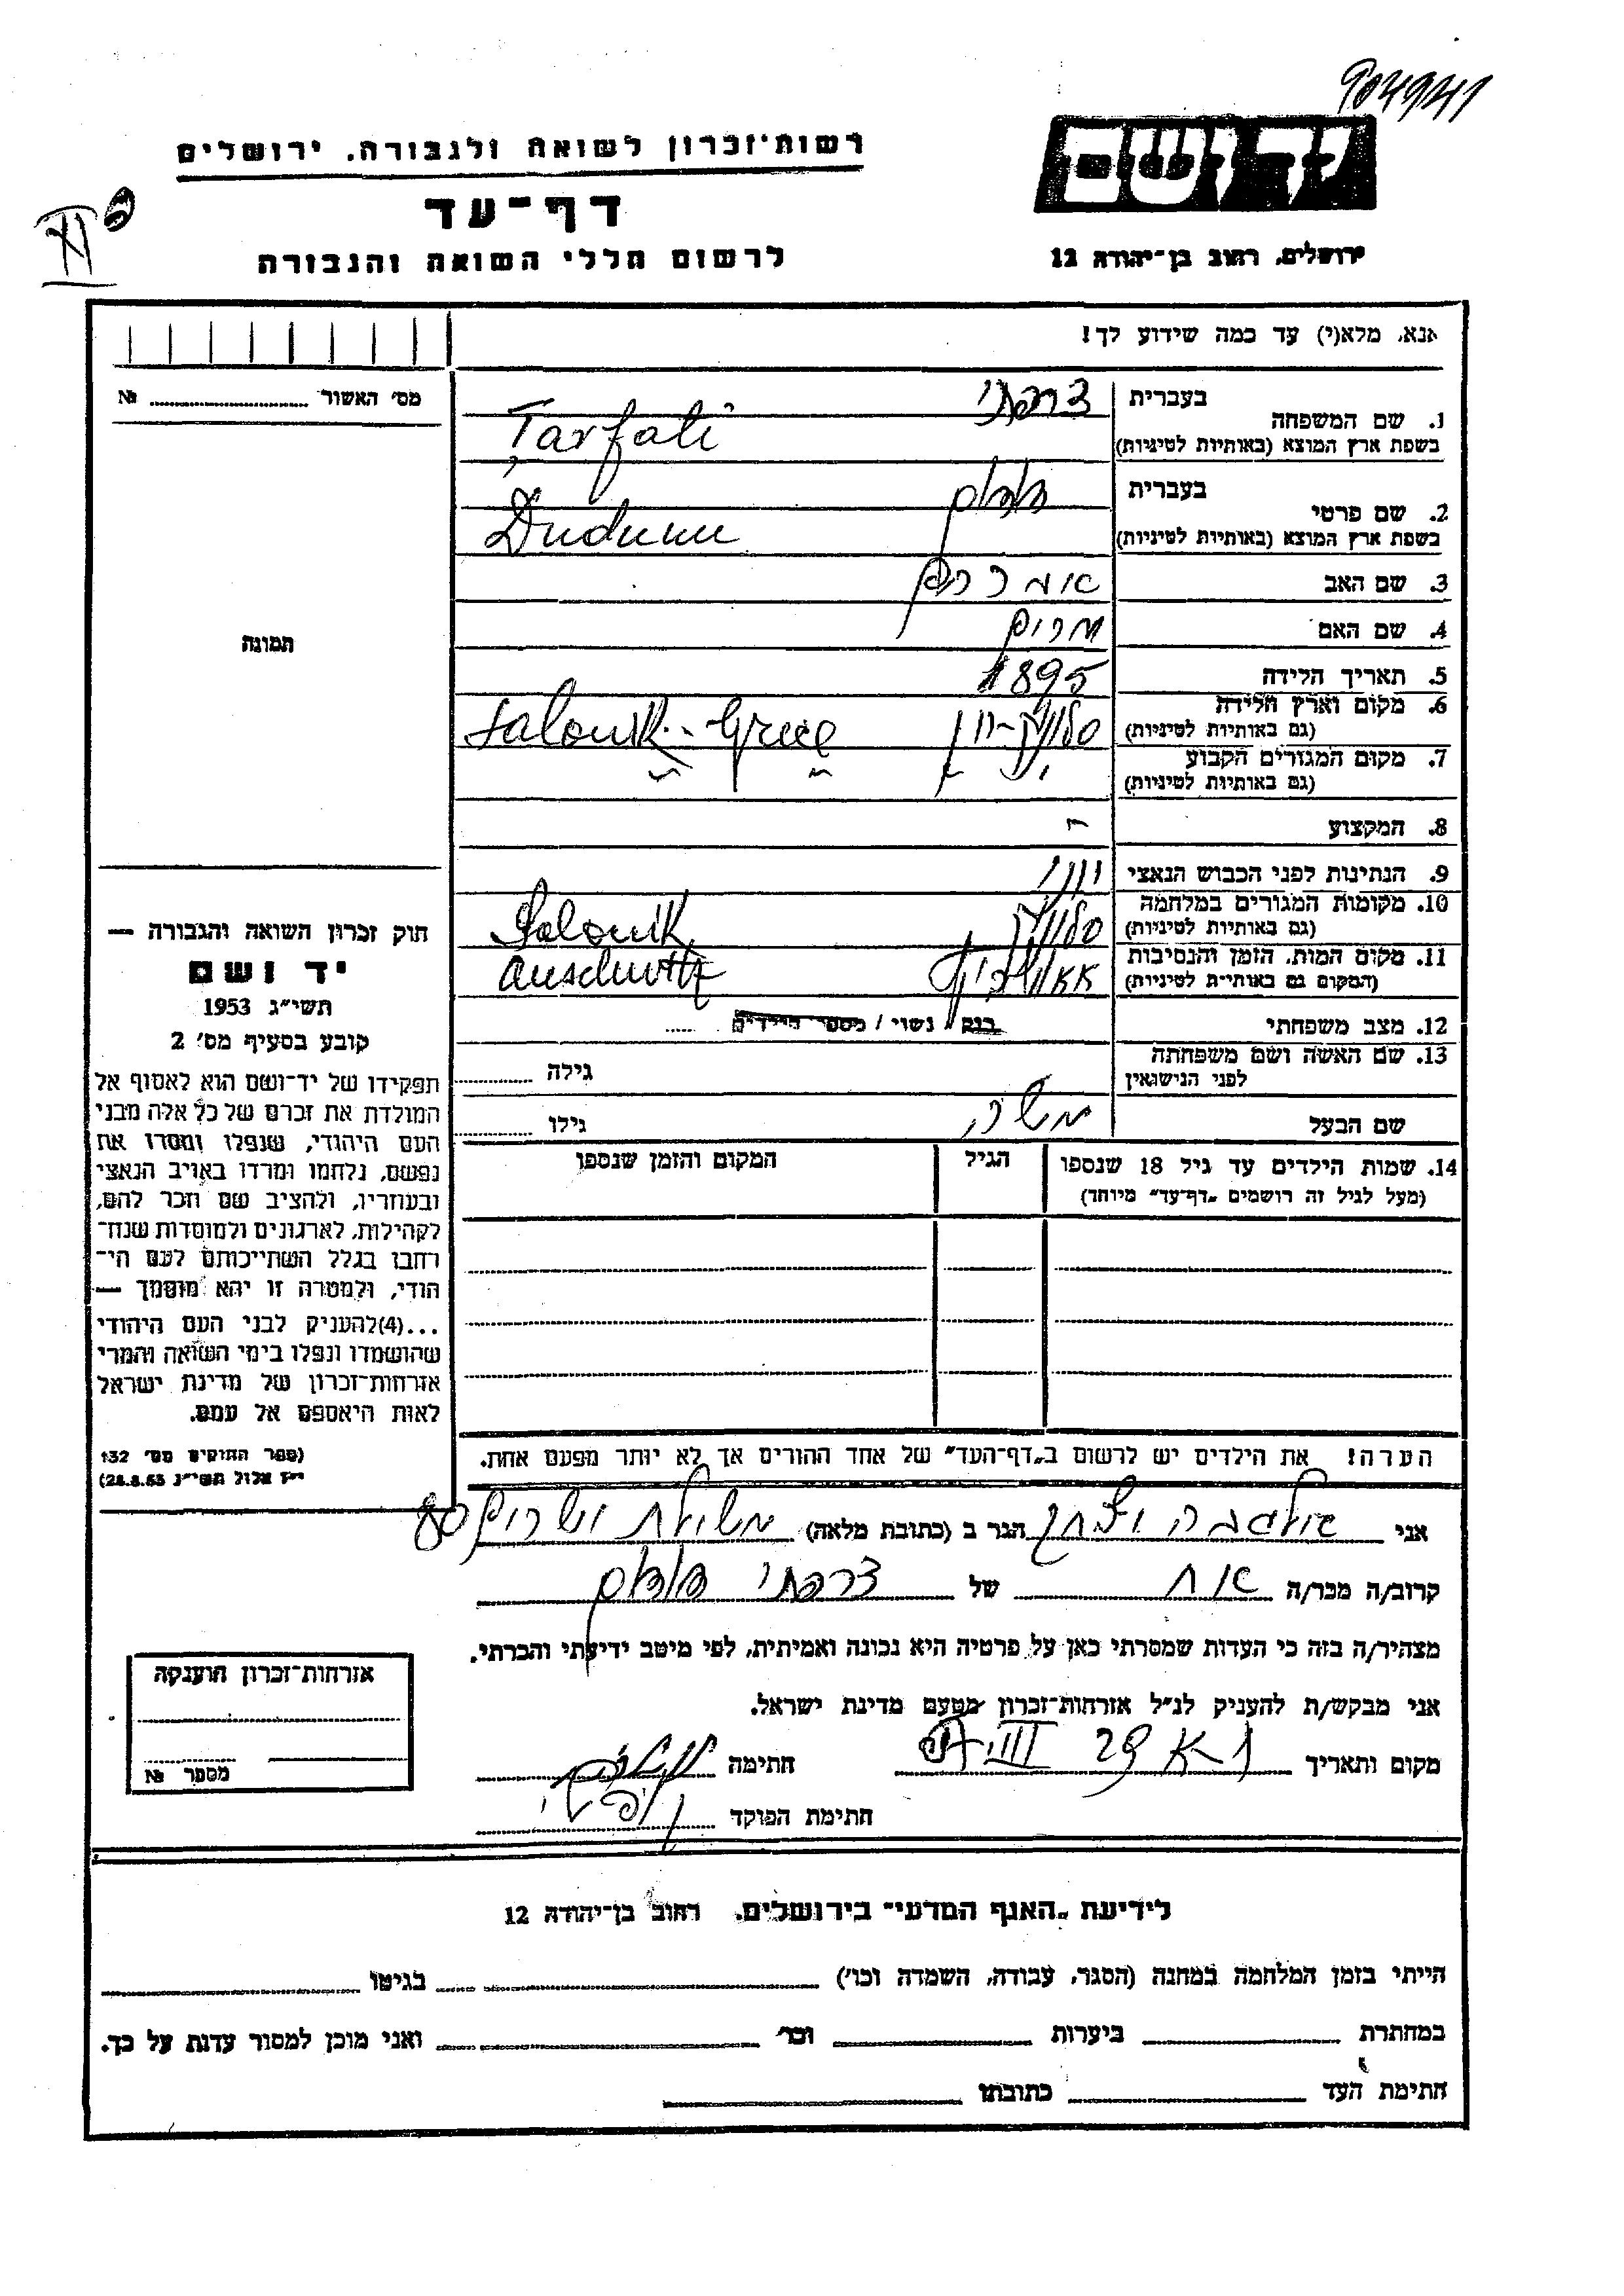 904941
רשות־זכרון לשואה ולגבורה, ירושלים
יד ושם
דף־עד
לרשום חללי השואה והגבורה
ירושלים, רחוב בן־יהודה 12
אנא, מלא(י) עד כמה שידוע לך!
מס׳ האשור № 
1. שם המשפחה בעברית צרפתי
בשפת ארץ המוצא (באותיות לטיניות) Țarfati
2. שם פרטי בעברית
בשפת ארץ המוצא (באותיות לטיניות) Dudunu
3. שם האב אברהם
4. שם האם מרים
5. תאריך הלידה 1895
6. מקום וארץ הלידה סלוניקי-יון Salonik - Grece
(גם באותיות לטיניות)
7. מקום המגורים הקבוע
(גם באותיות לטיניות)
8. המקצוע -
9. הנתינות לפני הכבוש הנאצי יווני
10. מקומות המגורים במלחמה סלוניקי Salonik
(גם באותיות לטיניות)
11. מקום המות, הזמן והנסיבות Auschwitz
(המקום גם באותיות לטיניות)
12. מצב משפחתי רוק / נשוי / מספר הילדים
13. שם האשה ושם משפחתה לפני הנישואין גילה
שם הבעל משה גילו
14. שמות הילדים עד גיל 18 שנספו הגיל המקום והזמן שנספו
(מעל לגיל זה רושמים „דף־עד״ מיוחד)
תמונה
חוק זכרון השואה והגבורה —
יד ושם
תשי״ג 1953
קובע בסעיף מס׳ 2
תפקידו של יד־ושם הוא לאסוף אל
המולדת את זכרם של כל אלה מבני
העם היהודי, שנפלו ומסרו את
נפשם, נלחמו ומרדו באויב הנאצי
ובעוזריו, ולהציב שם וזכר להם,
לקהילות, לארגונים ולמוסדות שנח־
רבו בגלל השתייכותם לעם הי־
הודי, ולמטרה זו יהא מוסמך —
...(4)להעניק לבני העם היהודי
שהושמדו ונפלו בימי השואה והמרי
אזרחות־זכרון של מדינת ישראל
לאות היאספם אל עמם.
(ספר החוקים מס׳ 132
י״ז אלול תשי״ג 28.8.53)
הערה! את הילדים יש לרשום ב„דף־העד״ של אחד ההורים אך לא יותר מפעם אחת.
אני הגר ב (כתובת מלאה) 80
קרוב/ה מכר/ה אח של צרפתי
מצהיר/ה בזה כי העדות שמסרתי כאן על פרטיה היא נכונה ואמיתית, לפי מיטב ידיעתי והכרתי.
אני מבקש/ת להעניק לנ״ל אזרחות־זכרון מטעם מדינת ישראל.
מקום ותאריך חתימה
חתימת הפוקד
אזרחות־זכרון הוענקה
מספר №
לידיעת „האגף המדעי״ בירושלים, רחוב בן־יהודה 12
הייתי בזמן המלחמה במחנה (הסגר, עבודה, השמדה וכו׳) בגיטו
במחתרת ביערות וכו׳ ואני מוכן למסור עדות על כך.
חתימת העד כתובתו